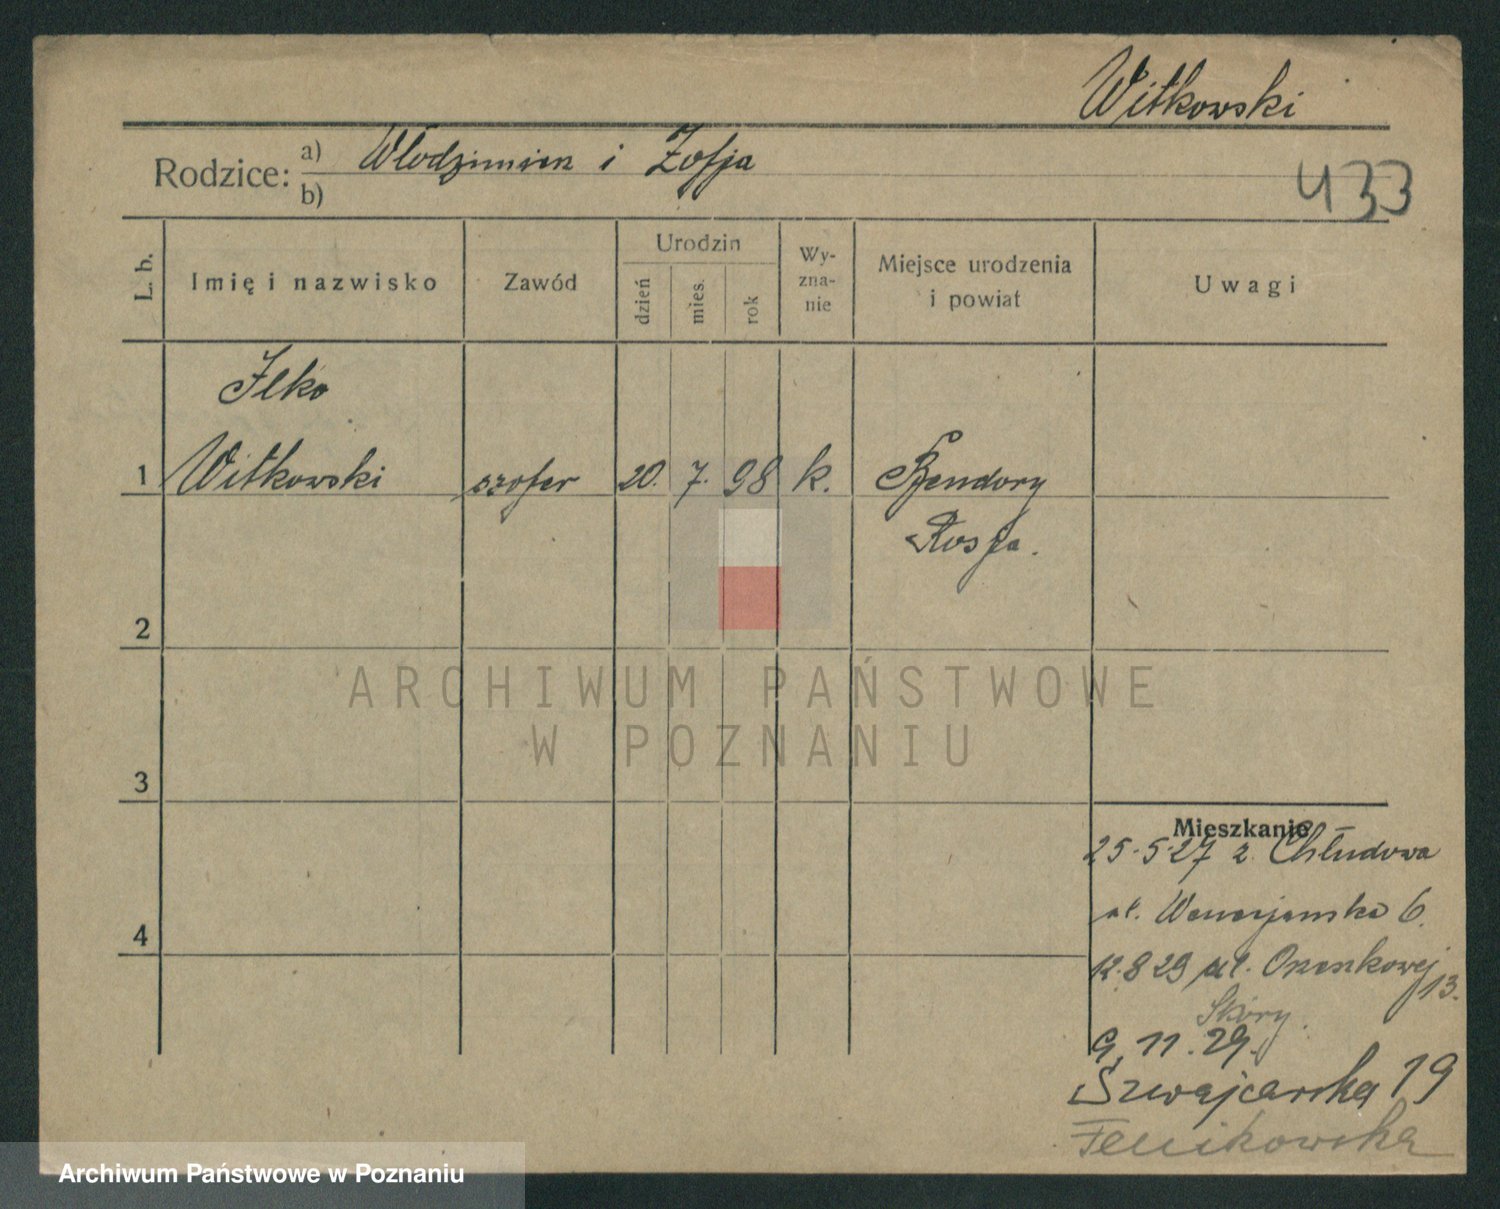 Witkowski
Rodzice: a) Włodzimierz i Zofja
b)
433
L. b.
Imię i nazwisko
Zawód
Urodzin
dzień
mies.
rok
Wy-
zna-
nie
Miejsce urodzenia
i powiat
Uwagi
Ilko
1 Witkowski szofer 20. 7. 98 k. Bendory
Rosja.
2
ARCHIWUM PAŃSTWOWE
W POZNANIU
3
Mieszkanie
25.5.27 z Chłudowa
ul. 6
4
12.8.29 ul. 13.
Skóry.
9. 11. 29.
Szwajcarska 19
Archiwum Państwowe w Poznaniu